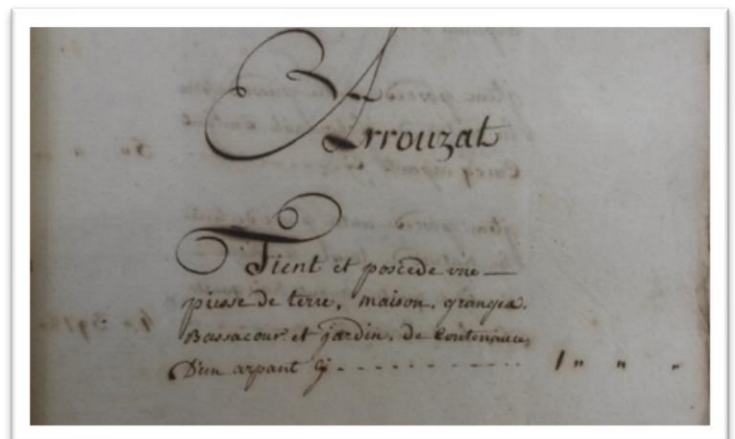 Arrouzat
Tient et possede une
piesse de terre, maison, granges,
Bassacour et jardin, de Contenance,
D'un arpant Cy - - - - - - - - - 1 " " "